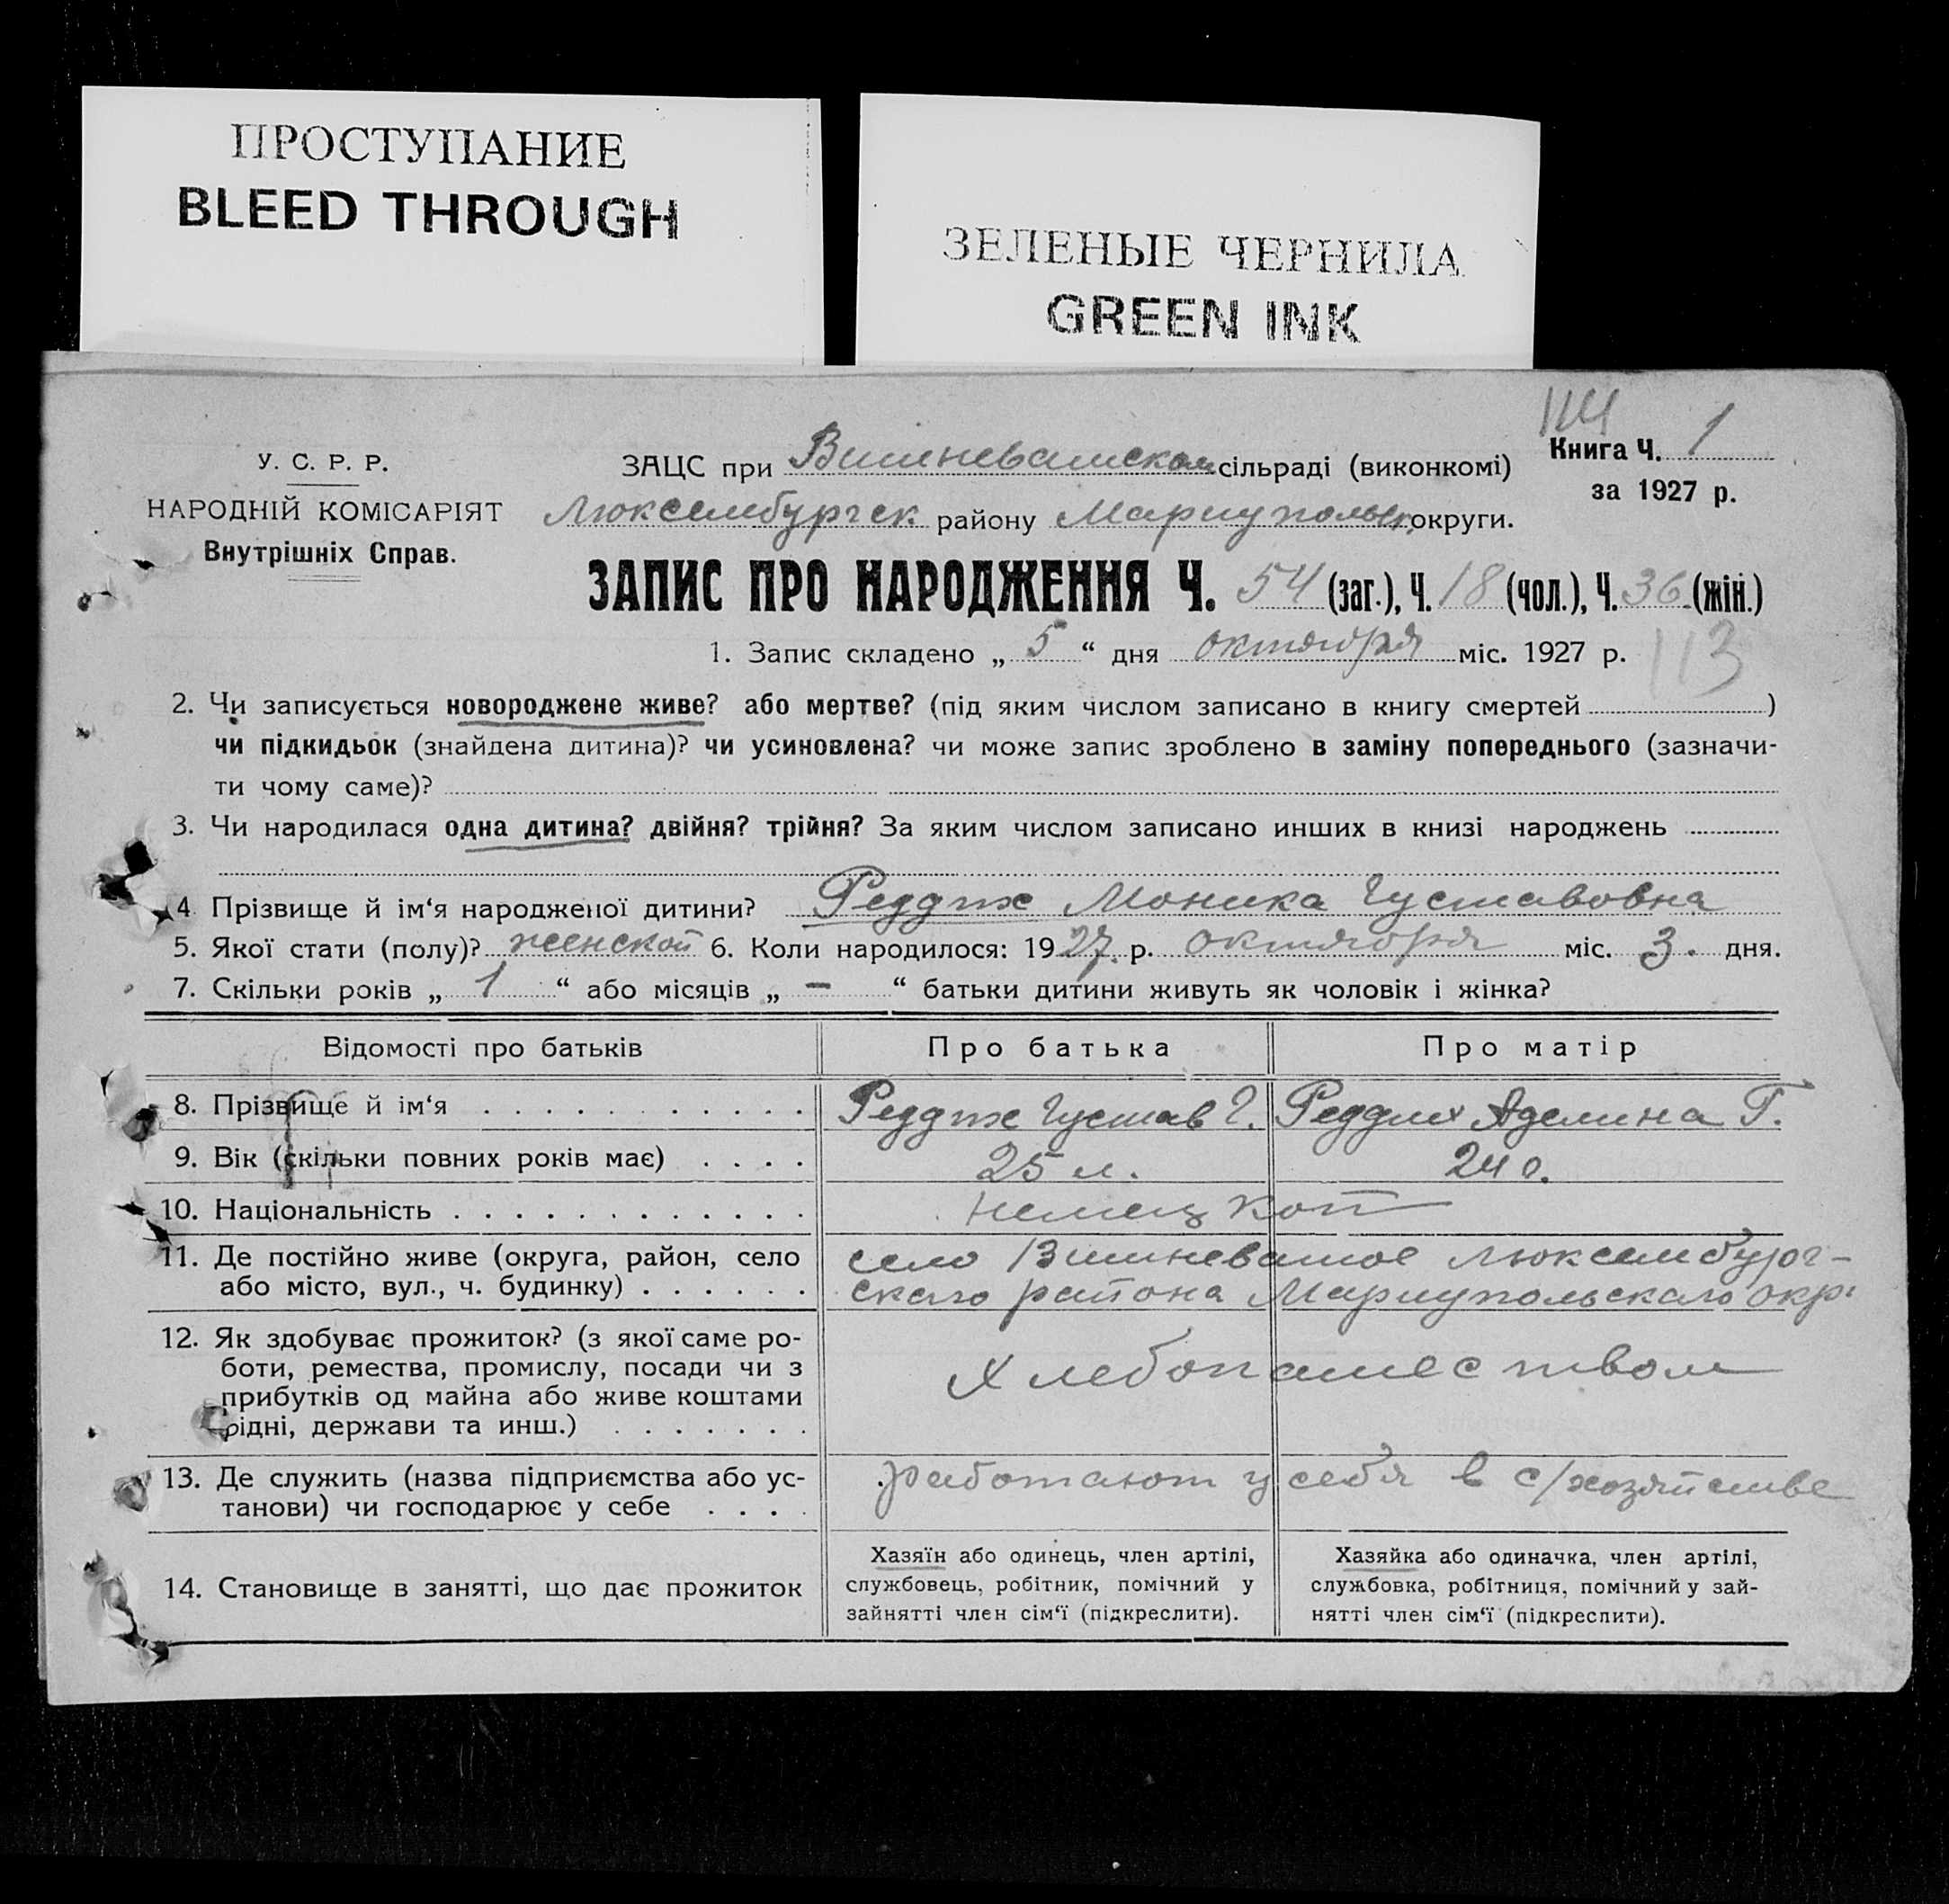 ПРОСТУПАНИЕ
BLEED THROUGH
ЗЕЛЕНЫЕ ЧЕРНИЛА
GREEN INK
114
У. С. Р. Р.
НАРОДНІЙ КОМІСАРІЯТ
Внутрішніх Справ.
ЗАЦС при Вишневатском сільраді (виконкомі)
Люксембургск. району Мариупольск. округи.
Книга Ч. 1
за 1927 р.
ЗАПИС ПРО НАРОДЖЕННЯ Ч. 54 (заг.), Ч. 18 (чол.), Ч. 36 (жін.)
1. Запис складено „ 5 “ дня октября міс. 1927 р.
113
2. Чи записується новороджене живе? або мертве? (під яким числом записано в книгу смертей )
чи підкидьок (знайдена дитина)? чи усиновлена? чи може запис зроблено в заміну попереднього (зазначи-
ти чому саме)?
3. Чи народилася одна дитина? двійня? трійня? За яким числом записано инших в книзі народжень
4. Прізвище й ім‘я народженої дитини? Моника Густавовна
5. Якої стати (полу)? женской 6. Коли народилося: 1927. р. октября міс. 3. дня.
7. Скільки років „ 1 “ або місяців „ – “ батьки дитини живуть як чоловік і жінка?
Відомості про батьків
Про батька
Про матір
8. Прізвище й ім‘я . . . . . . . . . . .
Густав Г.
Аделина Г.
9. Вік (скільки повних років має) . . . .
25 л.
24 г.
10. Національність . . . . . . . . . . . .
немецкой
11. Де постійно живе (округа, район, село
або місто, вул., ч. будинку) . . . . . .
село Вишневатое Люксембург-
скаго района Мариупольскаго окр.
12. Як здобуває прожиток? (з якої саме ро-
боти, ремества, промислу, посади чи з
прибутків од майна або живе коштами
рідні, держави та инш.) . . . . . . .
Хлебопашеством
13. Де служить (назва підприємства або ус-
танови) чи господарює у себе . . . .
работают у себя в с/хозяйстве
14. Становище в занятті, що дає прожиток
Хазяїн або одинець, член артілі,
службовець, робітник, помічний у
зайнятті член сім‘ї (підкреслити).
Хазяйка або одиначка, член артілі,
службовка, робітниця, помічний у зай-
нятті член сім‘ї (підкреслити).